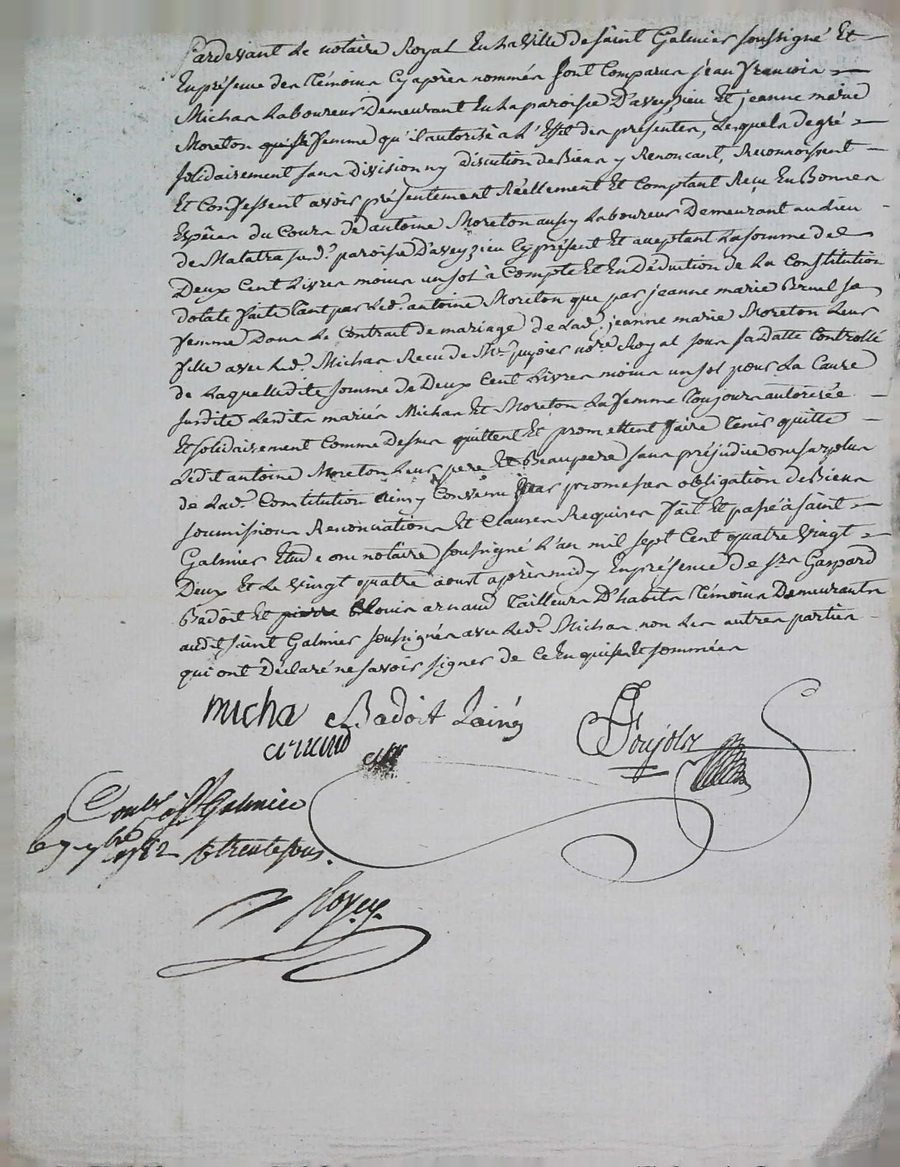 Pardevant Le notaire Royal En La Ville de Saint Galmier soussigné Et
En présence des témoins Cy après nommés sont Comparus jean françois
Michas Laboureur Demeurant En La paroisse D'aveyzieu Et jeanne marie
Moreton sa femme qu'il autorise à L'Effet des présentes, Lesquels de gré
solidairement sans division ny discution de Biens y Renonçant, Reconnoissent
Et Confessent avoir présentement Réellement Et Comptant Reçu En Bonnes
Espèces du Cours de antoine Moreton aussy Laboureur Demeurant au Lieu
de Malatra susd. paroisse D'aveyzieu Cy présent Et aceptant La somme de
Deux Cent Livres moins un sol à Compte Et En Déduction de La Constitution
dotale faite tant par Led. antoine Moreton que par jeanne marie Bruel sa
femme Dans Le Contrait de mariage de Lad. jeanne marie Moreton Leur
fille avec Led. Michas Reçu de Me pujoier nore Royal sous sa Datte Controllé
de Laquelle dite somme de Deux Cent Livres moins un sol pour La Cause
susdite Lesdits mariés Michas Et Moreton La femme toujours autorisée
Et solidairement Comme dessus quittent Et promettent faire tenir quitte
Ledit antoine Moreton Leur pere Et Beaupere sans préjudice du surplus
de Lad. Constitution ainsy Convenu par promesses obligation de Biens
soumissions Renonciations Et Clauses Requises fait Et passé à Saint
Galmier Etude du notaire soussigné L'an mil sept Cent quatre Vingt
Deux Et Le Vingt quatre aoust après midy En présence de srs Gaspard
Badoit Et Louis arnaud tailleurs D'habits témoins Demeurants
audit saint Galmier soussignés avec Led. Michas non Les autres parties
qui ont Déclaré ne savoir signer de Ce Enquises Et sommées
micha Badoit Lainé
arnaud
Contlé à St Galmier
le 7 7bre 1782 R trente sous.